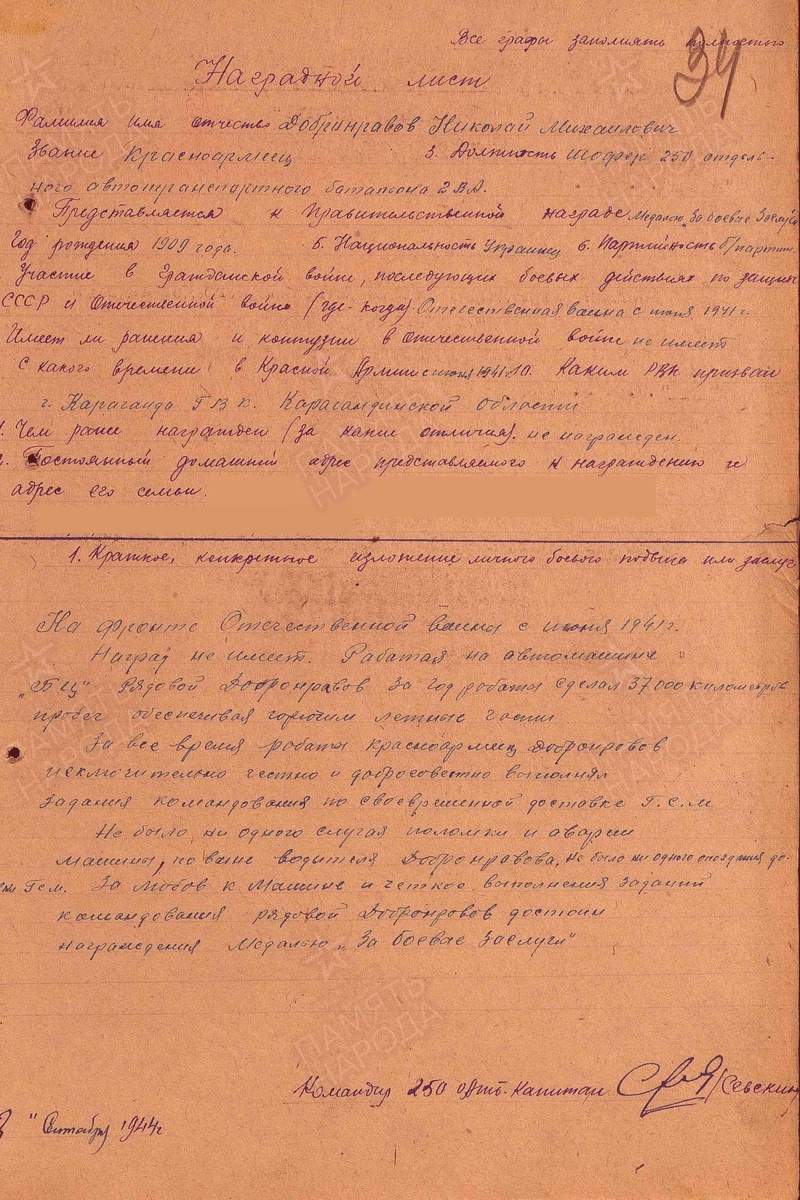 Все графы заполнять полностью
34
Наградной лист
Фамилия имя отчество Добронравов Николай Михайлович
Звание Красноармеец 3. Должность Шофер 250 отдель-
ного автотранспортного батальона 2 ВА.
Представляется к Правительственной награде Медалью "За боевые Заслуги
Год рождения 1909 года. 5. Национальность Украинец 6. Партийность б/партин.
Участие в Гражданской войне, последующих боевых действиях по защите
СССР и Отечественной войне (где-когда) Отечественная война с июня 1941 г.
Имеет ли ранения и контузии в отечественной войне не имеет
С какого времени в Красной Армии с июня 1941 г. 10. Каким РВК призван
г. Караганда ГВК. Карагандинской области
Чем ранее награжден (за какие отличия). не награжден.
Постоянный домашний адрес представляемого к награждению и
адрес его семьи.
1. Краткое, конкретное изложение личного боевого подвига или заслуг
На фронте Отечественной войны с июня 1941 г.
Наград не имеет. Работая на автомашине
„БЦ" Рядовой Добронравов за год работы сделал 37000 километров
пробег обеспечивая горючим летные части
За все время работы красноармеец Добронровов
исключительно честно и добросовестно выполнял
задания командования по своевременной доставке Г.С.М
Не было ни одного случая поломки и аварии
машины, по вине водителя Добронравова, не было ни одного опоздания до-
Гсм. За любов к машине и четкое выполнения заданий
командования рядовой Добронровов достоин
награждения Медалью „За боевые Заслуги"
Командир 250 оатб. капитан /Севский
" Сентября 1944г
ПАМЯТЬ
НАРОДА